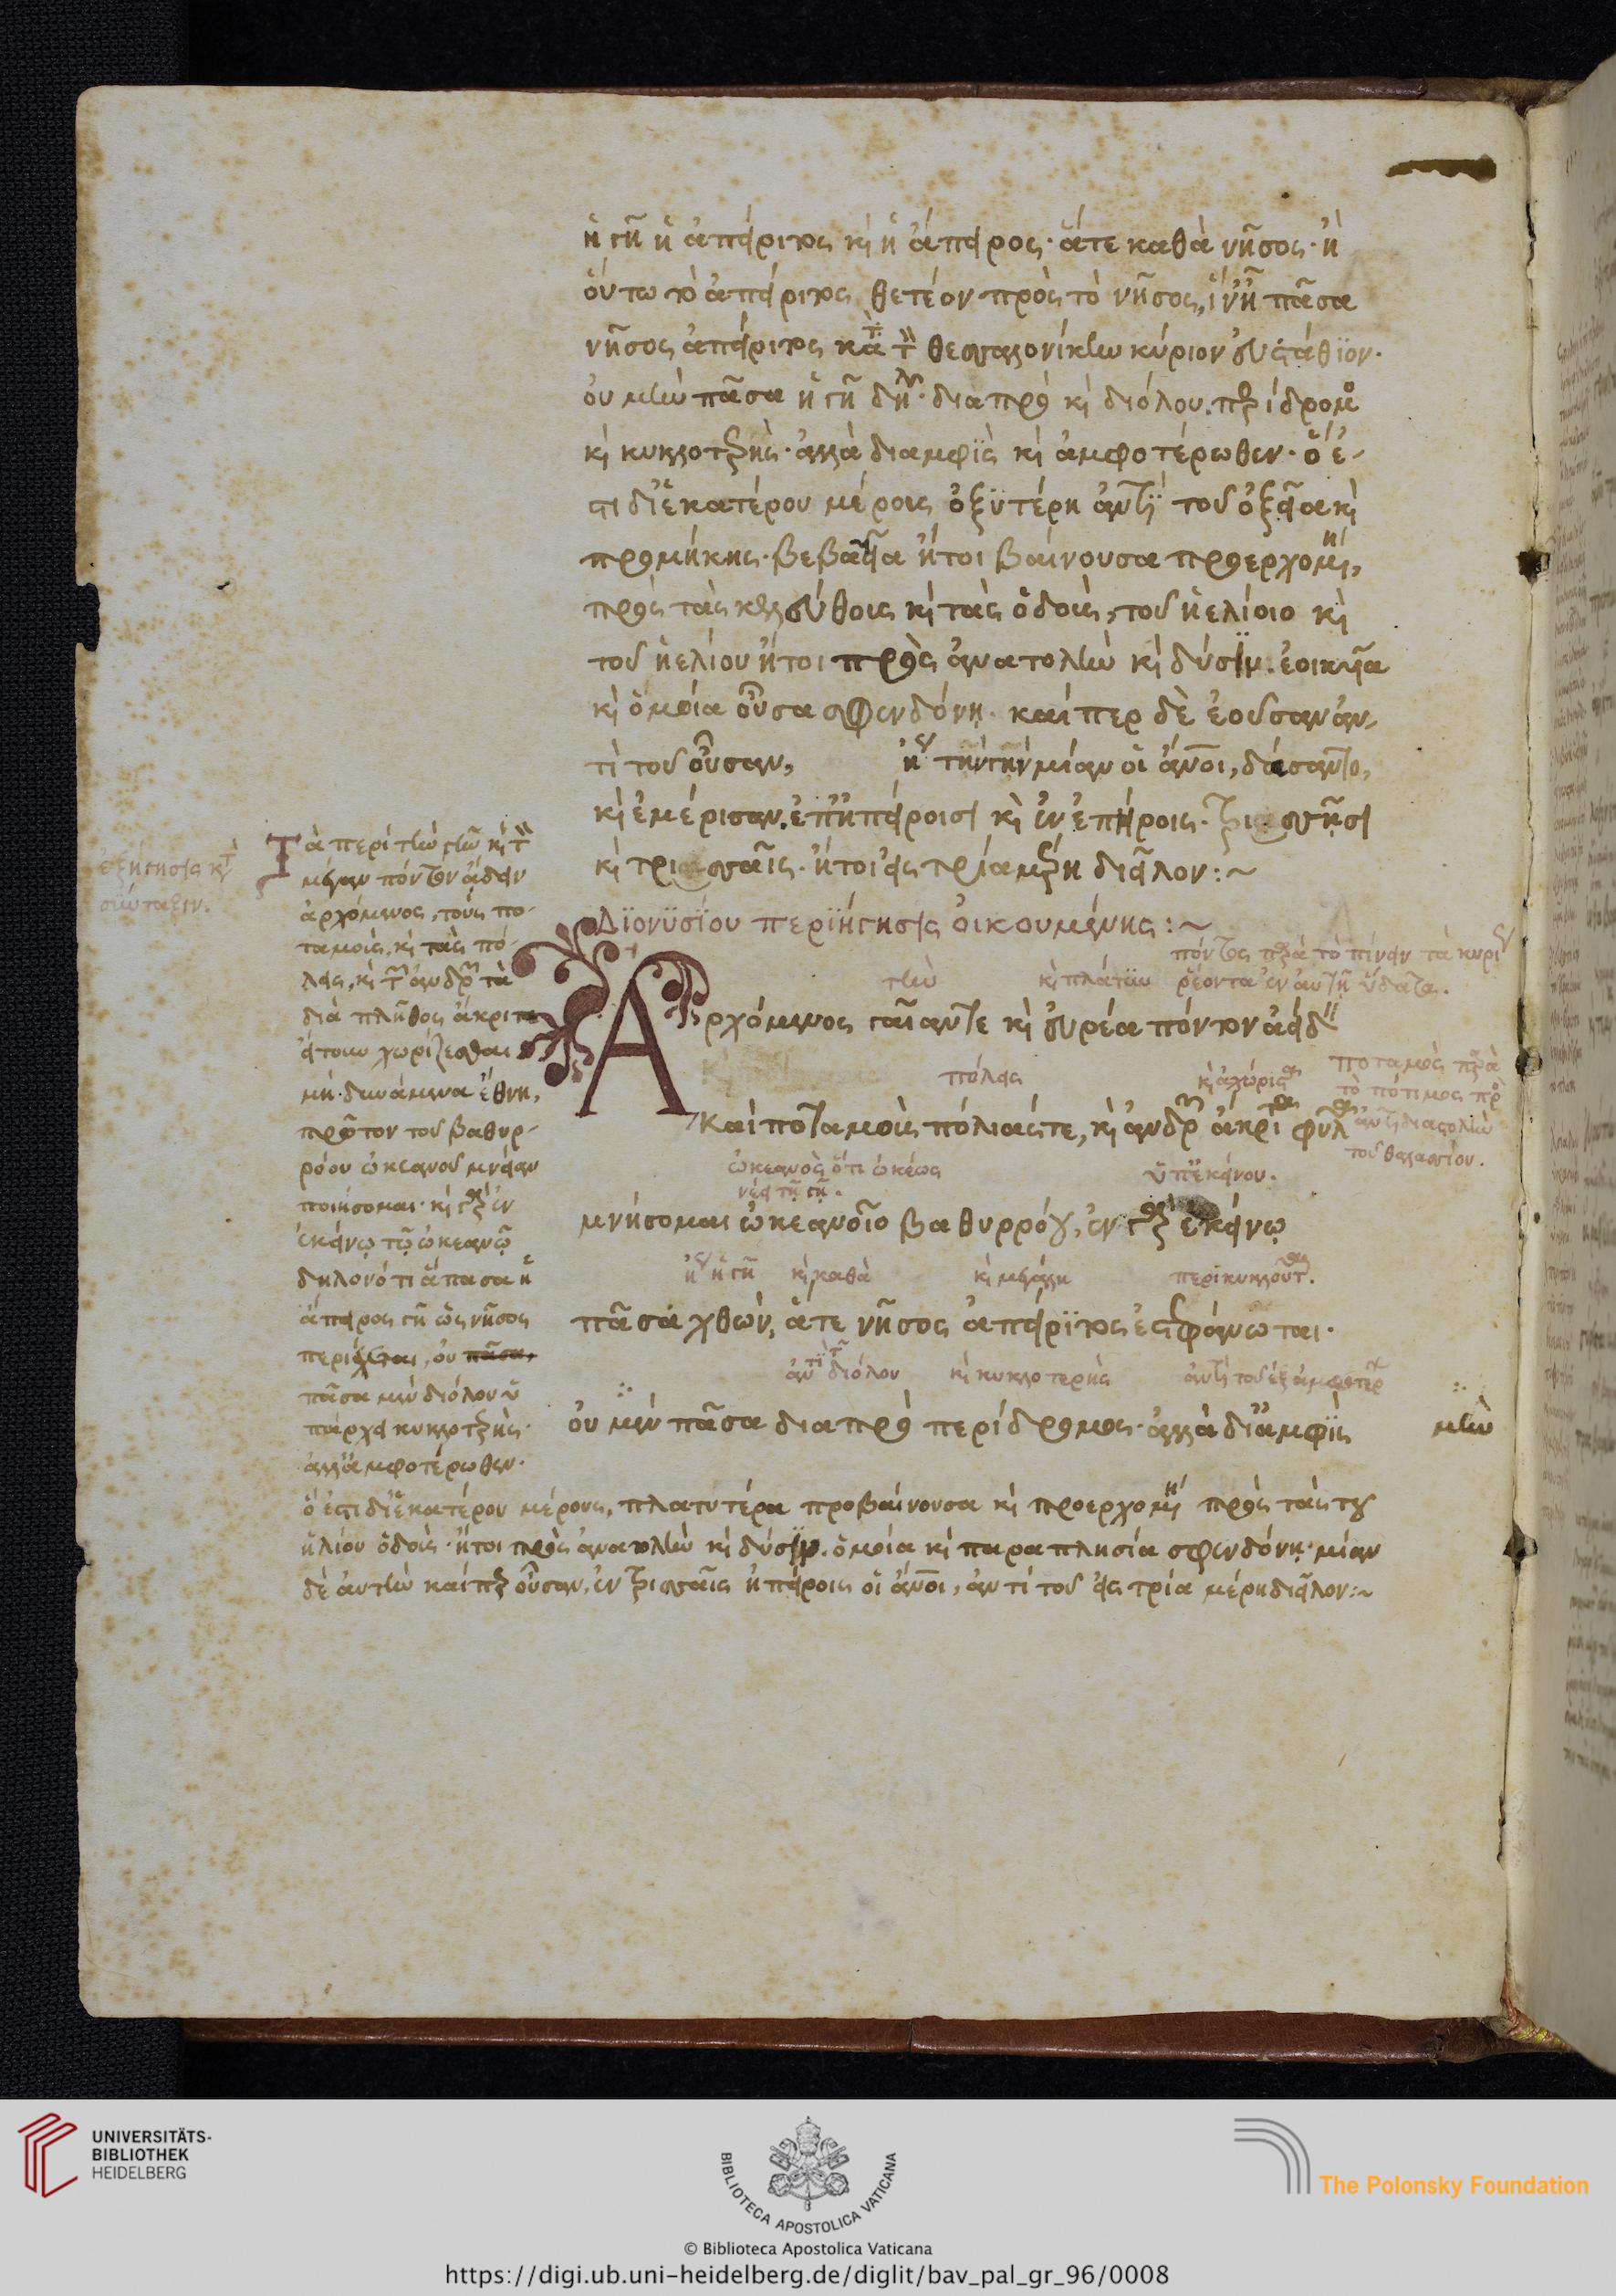 ἡ γῆ ἡ ἀπείριτος κὶ ἡ ἄπειρος· ἅτε καθὰ νῆσος· ἢ
οὕτω τὸ ἀπείριτος θετέον πρὸς τὸ νῆσος, ἵν ᾖ πᾶσα
νῆσος ἀπείριτος κατὰ τὸν θεσσαλονίκην κύριον εὐστάθϊον·
οὐ μὴν πᾶσα ἡ γῆ δηλ· διαπρὸ κὶ διόλου περίδρομος
κὶ κυκλοτερὴς· ἀλλὰ διαμφὶς κὶ ἀμφοτέρωθεν· ὅ ἐ-
στι δι ἑκατέρου μέρους ὀξϋτέρη ἀντὶ τοῦ ὀξεῖα κὶ
προμήκης· βεβαυῖα ἤτοι βαίνουσα προερχομένη,
πρὸς τὰς κελεύθους κὶ τὰς ὁδοὺς, τοῦ ἠελίοιο κὶ
τοῦ ἡελίου ἤτοι πρὸς ἀνατολὴν κὶ δύσϊν. ἐοικυῖα
κὶ ὁμοία οὖσα σφενδόνῃ· καίπερ δὲ ἐοῦσαν ἀν-
τὶ τοῦ οὖσαν, ἤγουν τὴν γῆν μίαν οἱ ἄνοι, δάσαντο,
κὶ ἐμέρισαν. ἐπ ἠπείροισι κὶ ἐν ἠπείροις· τρισσῇσι
κὶ τρισσαῖς· ἤτοι εἰς τρία μέρη διεῖλον:~
ἐξήγησις κτ
σύνταξιν.
Τὰ περὶ τὴν γῆν κὶ τὸν
μέγαν πόντον ᾄδειν
ἀρχόμενος, τούς πο-
ταμοὺς, κὶ τὰς πό-
λεις, κὶ τῶν ἀνδρῶν τὰ
διὰ πλῆθος ἄκριτα
εἴτουν χωρίζεσθαι
μὴ δυνάμενα ἔθνη,
πρῶτον τοῦ βαθυρ-
ρόου ὠκεανοῦ μνείαν
ποιήσομαι· κὶ γὰρ ἐν
ἐκείνῳ τῷ ὠκεανῷ
δηλονότι ἅπασα ἡ
ἄπειρος γῆ ὡς νῆσος
περιέχεται, οὐ πᾶσα,
πᾶσα μὴν διόλου ὑ
πάρχει κυκλοτερὴς·
ἀλλ ἀμφοτέρωθεν·
Δϊονϋσΐου περϊήγησις οἰκουμένης:~
πόντος παρὰ τὸ πίνειν τὰ κυρι
τὴν κὶ πλατεῖαν ῥέοντα ἐν αὐτῇ ὕδατα.
Ἀρχόμενος γαῖαν τε κὶ εὐρέα πόντον ἀείδειν
πόλεις κὶ ἀχώριστα ποταμὸς παρὰ
τὸ πότιμος πρὸς
Καὶ ποταμοὺς πόλιάς τε, κὶ ἀνδρῶν ἄκριτα φῦλα ἀντιδιαστολὴν
τοῦ θαλασσίου.
ὠκεανὸς ὅτι ὠκέως ὑπ ἐκείνου.
νέει τῇ γῇ.
μνήσομαι ὠκεανοῖο βαθυρρόου, ἐν γὰρ ἐκείνῳ
ἤγουν ἡ γῆ κὶ καθὰ κὶ μεγάλη περικυκλοῦται.
πᾶσα χθὼν, ἅτε νῆσος ἀπείρϊτος ἐστεφάνωται·
ἀντὶ τοῦ διόλου κὶ κυκλοτερὴς ἀντὶ τοῦ ἐξ ἀμφοτέρων
οὐ μὲν πᾶσα διαπρὸ περίδρομος· ἀλλὰ διἀμφϊς μὴν
ὅ ἐστι δι ἑκατέρου μέρους, πλατυτέρα προβαίνουσα κὶ προερχομένη πρὸς τὰς τοῦ
ἡλίου ὁδοὺς· ἤτοι πρὸς ἀνατολὴν κὶ δύσϊν. ὁμοία κὶ παραπλησία σφενδόνῃ· μίαν
δὲ αὐτὴν καίπερ οὖσαν, ἐν τρισσαῖς ἠπείροις οἱ ἄνοι, ἀντὶ τοῦ εἰς τρία μέρη διεῖλον:~
UNIVERSITÄTS-
BIBLIOTHEK
HEIDELBERG
BIBLIOTECA APOSTOLICA VATICANA
The Polonsky Foundation
© Biblioteca Apostolica Vaticana
https://digi.ub.uni-heidelberg.de/diglit/bav_pal_gr_96/0008